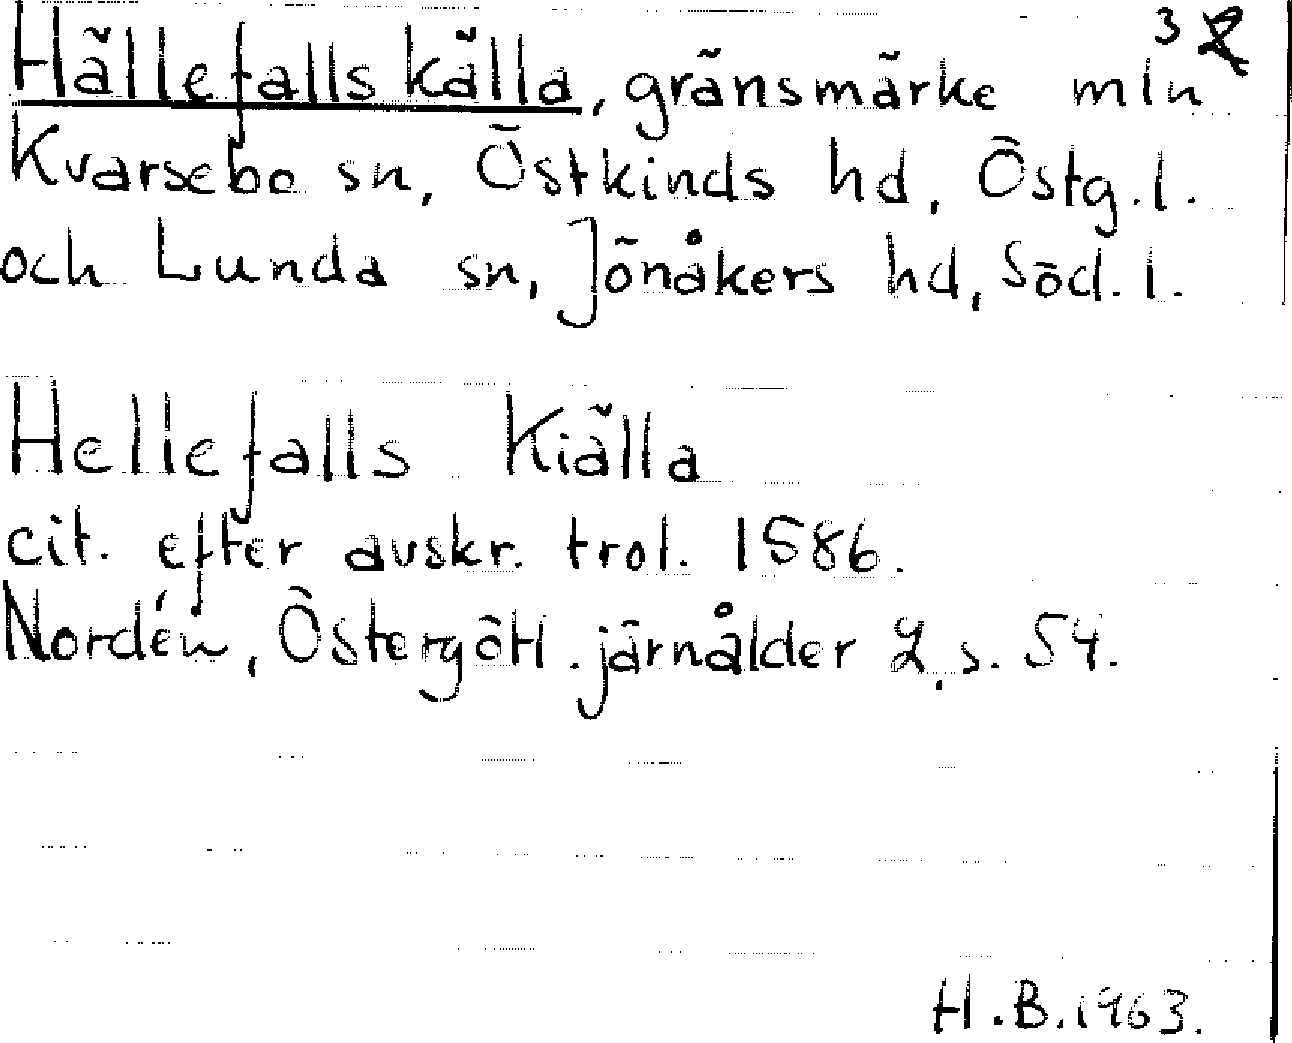 Hällefalls källa, gränsmärke mln 3
Kvarsebo sn, Östkinds hd, Östg. l.
och Lunda sn, Jönåkers hd, Söd. l.
Hellefalls Kiälla
cit. efter avskr. trol. 1586.
Nordén, Östergötl. järnålder 2, s. 54.
H.B. 1963.